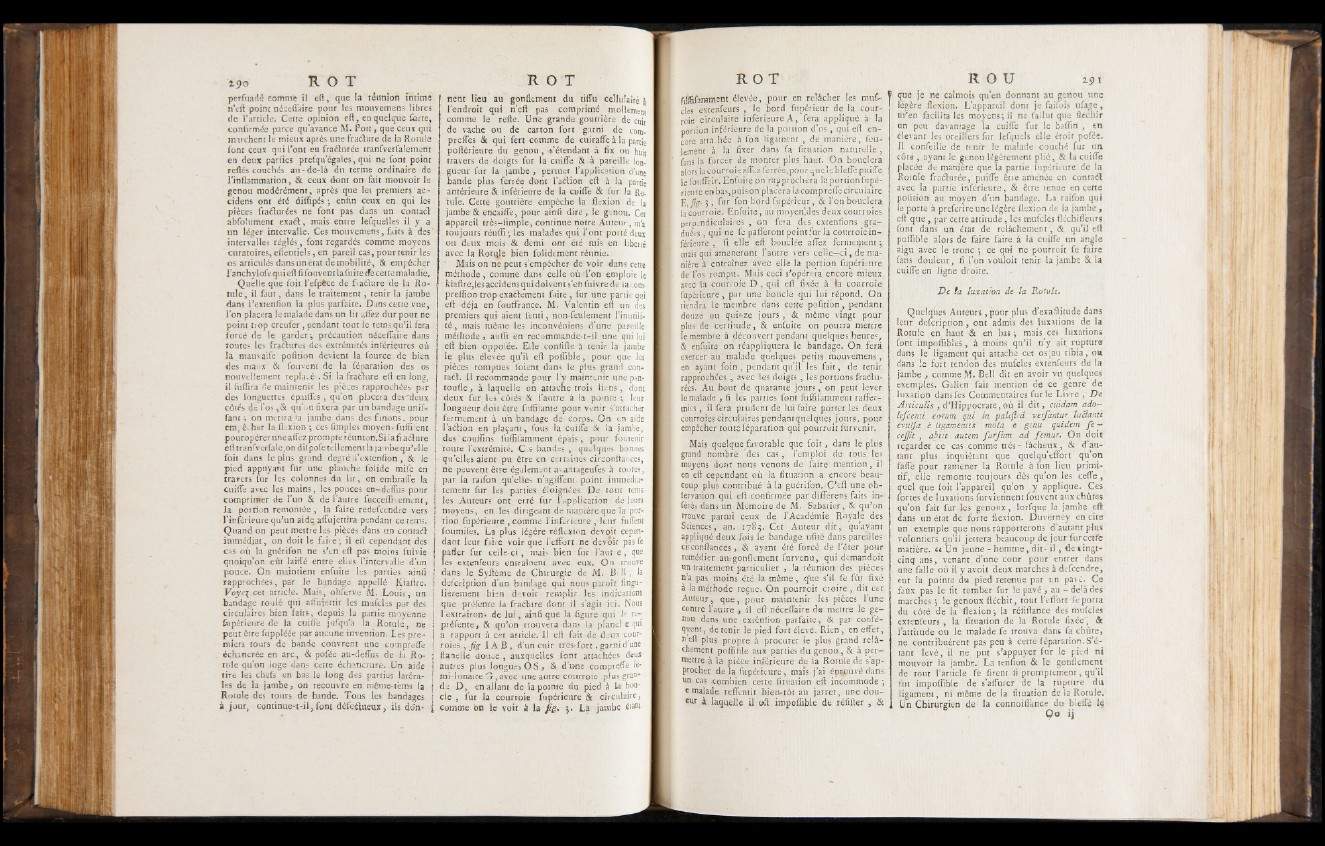 290 R O T
perſuadé comme il eſt, que la réunion intime
n'eſt point néceſſaire pour les mouvemens libres
de l'article. Cette opinion eſt, en quelque ſorte,
confirmée parce qu'avance M. Pott, que ceux qui
marchent le mieux après une fracture de la Rotule
ſont ceux qui l'ont eu fracturée tranſverſalement
en deux parties preſqu'égales, qui ne ſont point
reſtés couchés au-de-là du terme ordinaire de
l'inflammation, & ceux dont on fait mouvoir le
genou modérément, après que les premiers ac-
cidens ont été diſſipés; enfin ceux en qui les
pièces fracturées ne ſont pas dans un contact
abſolument exact, mais entre leſquelles il y a
un léger intervalle. Ces mouvemens, faits à des
intervalles réglés, ſont regardés comme moyens
curatoires, eſſentiels, en pareil cas, pour tenir les
os articulés dans un état de mobilité, & empêcher
l'anchyloſe qui eſt ſi ſouvent la ſuite de cette maladie.
Quelle que ſoit l'eſpèce de fracture de la Ro-
tule, il faut, dans le traitement, tenir la jambe
dans l'extenſion la plus parfaite. Dans cette vue,
l'on placera le malade dans un lit aſſez dur pour ne
point trop creuſer, pendant tout le tems qu'il ſera
forcé de le garder; précaution néceſſaire dans
toutes les fractures des extrémités inférieures où
la mauvaiſe poſition devient la ſource de bien
des maux & ſouvent de la ſéparation des os
nouvellement replacés. Si la fracture eſt en long,
il ſuffira de maintenir les pièces rapprochées par
des longuettes épaiſſes, qu'on placera des deux
côtés de l'os, & qu'on fixera par un bandage uniſ-
ſant; on mettra la jambe dans des fanons, pour
empêcher la flexion; ces ſimples moyens ſuffiſent
pour opérer une aſſez prompte réunion. Si la fracture
eſt tranſverſale, on diſpoſe tellement la jambe qu'elle
ſoit dans le plus grand degré d'extenſion, & le
pied appuyant ſur une planche ſolide miſe en
travers ſur les colonnes du lit, on embraſſe la
cuiſſe avec les mains, les pouces en-deſſus pour
comprimer de l'un & de l'autre ſucceſſivement,
la portion remontée, la faire redeſcendre vers
l'inférieure qu'un aide aſſujettira pendant ce tems.
Quand on peut mettre les pièces dans un contact
immédiat, on doit le faire; il eſt cependant des
cas où la guériſon ne s'en eſt pas moins ſuivie
quoiqu'on eût laiſſé entre elles l'intervalle d'un
pouce. On maintient enſuite les parties ainſi
rapprochées, par le bandage appellé Kiaſtre.
Voyez cet article. Mais, obſerve M. Louis, un
bandage roulé qui aſſujettit les muſcles par des
circulaires bien faits, depuis la partie moyenne
ſupérieure de la cuiſſe juſqu'à la Rotule, ne
peut être ſuppléée par aucune invention. Les pre-
miers tours de bande couvrent une compreſſe
échancrée en arc, & poſée au-deſſus de la Ro-
tule qu'on loge dans cette échancrure. Un aide
tire les chefs en bas le long des parties latéra-
les de la jambe, on recouvre en même-tems la
Rotule de tours de bande. Tous les bandages
à jour, continue-t-il, ſont défectueux, ils don-
R O T
nent lieu au gonflement du tiſſu cellulaire à
l'endroit qui n'eſt pas comprimé mollement
comme le reſte. Une grande gouttière de cuir
de vache ou de carton fort garni de com-
preſſes & qui ſert comme de cuiraſſe à la partie
poſtérieure du genou, s'étendant à ſix ou huit
travers de doigts ſur la cuiſſe & à pareille lon-
gueur ſur la jambe, permet l'application d'une
bande plus ſerrée dont l'action eſt à la partie
antérieure & inférieure de la cuiſſe & ſur la Ro-
tule. Cette gouttière empêche la flexion de la
jambe & encaiſſe, pour ainſi dire, le genou. Cet
appareil très-ſimple, continue notre Auteur, m'a
toujours réuſſi; les malades qui l'ont porté deux
ou deux mois & demi ont été mis en liberté
avec la Rotule bien ſolidement réunie.
Mais on ne peut s'empêcher de voir dans cette
méthode, comme dans celle où l'on emploie le
kiaſtre, les accidens qui doivent s'en ſuivre de la com-
preſſion trop exactement faite, ſur une partie qui
eſt déja en ſouffrance. M. Valentin eſt un des
premiers qui aient ſenti, non-ſeulement l'inutili-
té, mais même les inconvéniens d'une pareille
méthode, auſſi en recommande-t-il une qui lui
eſt bien oppoſée. Elle conſiſte à tenir la jambe
le plus élevée qu'il eſt poſſible, pour que les
pièces rompues ſoient dans le plus grand con-
tact. Il recommande pour l'y maintenir une pan-
toufle, à laquelle on attache trois liens, dont
deux ſur les côtés & l'autre à la pointe; leur
longueur doit être ſuffiſante pour venir s'attacher
fermement à un bandage de corps. On en aide
l'action en plaçant, ſous la cuiſſe & la jambe,
des couſſins ſuffiſamment épais, pour ſoutenir
toute l'extrêmité. Ces bandes, quelques bonnes
qu'elles aient pu être en certaines circonſtances,
ne peuvent être également avantageuſes à toutes,
par la raiſon qu'elles n'agiſſent point immédia-
tement ſur les parties éloignées. De tout tems
les Auteurs ont erré ſur l'application de leurs
moyens, en les dirigeant de manière que la por-
tion ſupérieure, comme l'inférieure, leur fuſſent
ſoumiſes. La plus légère réflexion devoit cepen-
dant leur faire voir que l'effort ne devoit pas ſe
paſſer ſur celle-ci, mais bien ſur l'autre, que
les extenſeurs entraînent avec eux. On trouve
dans le Syſtême de Chirurgie de M. B ll, la
deſcription d'un bandage qui nous paroît ſingu-
lièrement bien devoir remplir les indications
que préſente la fracture dont il s'agit ici. Nous
l'extrairons de lui, ainſi que la figure qui le re-
préſente, & qu'on trouvera dans la planche qui
a rapport à cet article. Il eſt fait de deux cour-
roies, fig. 1 A B, d'un cuir très-fort, garni d'une
flanelle douce, auxquelles ſont attachées deux
autres plus longues O S, & d'une compreſſe ſe-
mi-lunaire G, avec une autre courroie plus gran-
de D, en allant de la pointe du pied à la bou-
cle, ſur la courroie ſupérieure & circulaire,
comme on le voir à la fig. 3. La jambe étant
R O T
ſuffiſamment élevée, pour en relâcher les muſ-
cles extenſeurs, le bord ſupérieur de la cour-
roie circulaire inférieure A, ſera appliqué à la
portion inférieure de la portion d'os, qui eſt en-
core attachée à ſon ligament, de manière, ſeu-
lement à la fixer dans ſa ſituation naturelle,
ſans la forcer de monter plus haut. On bouclera
alors la courroie aſſez ſerrée, pour que le bleſſé puiſſe
le ſouffrir. Enſuite on rapprochera la portion ſupé-
rieure en bas, puis on placera la compreſſe circulaire
E, fig. 3, ſur ſon bord ſupérieur, & l'on bouclera
la courroie. Enſuite, au moyen des deux courroies
perpendiculaires, on fera des extenſions gra-
duées, qui ne ſe paſſeront point ſur la courroie in-
férieure, ſi elle eſt bouclée aſſez fermement;
mais qui ameneront l'autre vers celle-ci, de ma-
nière à entraîner avec elle la portion ſupérieure
de l'os rompu. Mais ceci s'opérera encore mieux
avec la courroie D, qui eſt fixée à la courroie
ſupérieure, par une boucle qui lui répond. On
tiendra le membre dans cette poſition, pendant
douze ou quinze jours, & même vingt pour
plus de certitude, & enſuite on pourra mettre
le membre à découvert pendant quelques heures,
& enſuite on réappliquera le bandage. On fera
exercer au malade quelques petits mouvemens,
en ayant ſoin, pendant qu'il les fait, de tenir
rapprochées, avec les doigts, les portions fractu-
rées. Au bout de quarante jours, on peut lever
le malade, ſi les parties ſont ſuffiſamment raffer-
mies, il ſera prudent de lui faire porter les deux
courroies circulaires pendant quelques jours, pour
empêcher toute ſéparation qui pourroit ſurvenir.
Mais quelque favorable que ſoit, dans le plus
grand nombre des cas, l'emploi de tous les
moyens dont nous venons de faire mention, il
en eſt cependant où la ſituation a encore beau-
coup plus contribué à la guériſon. C'eſt une ob-
ſervation qui eſt confirmée par différens faits in-
ſérés dans un Mémoire de M. Sabatier, & qu'on
trouve parmi ceux de l'Académie Royale des
Sciences, an. 1783. Cet Auteur dit, qu'ayant
appliqué deux fois le bandage uſité dans pareilles
circonſtances, & ayant été forcé de l'ôter pour
remédier au gonflement ſurvenu, qui demandoit
un traitement particulier, la réunion des pièces
n'a pas moins été la même, que s'il ſe fût fixé
à la méthode reçue. On pourroit croire, dit cet
Auteur, que, pour maintenir les pièces l'une
contre l'autre, il eſt néceſſaire de mettre le ge-
nou dans une extenſion parfaite, & par conſé-
quent, de tenir le pied fort élevé. Rien, en effet,
n'eſt plus propre à procurer le plus grand relâ-
chement poſſible aux parties du genou, & à per-
mettre à la pièce inférieure de la Rotule de s'ap-
procher de la ſupérieure, mais j'ai éprouvé dans
un cas combien cette ſituation eſt incommode;
le malade reſſentit bien-tôt au jarret, une dou-
leur à laquelle il eſt impoſſible de réſiſter, &
R O U 291
que je ne calmois qu'en donnant au genou une
légère flexion. L'appareil dont je faiſois uſage,
m'en facilita les moyens; il ne fallut que fléchir
un peu davantage la cuiſſe ſur le baſſin, en
élevant les oreillers ſur leſquels elle étoit poſée.
Il conſeille de tenir le malade couché ſur un
côté, ayant le genou légèrement plié, & la cuiſſe
placée de manière que la partie ſupérieure de la
Rotule fracturée, puiſſe être amenée en contact
avec la partie inférieure, & être tenue en cette
poſition au moyen d'un bandage. La raiſon qui
le porte à preſcrire une légère flexion de la jambe,
eſt que, par cette attitude, les muſcles fléchiſſeurs
ſont dans un état de relâchement, & qu'il eſt
poſſible alors de faire faire à la cuiſſe un angle
aigu avec le tronc; ce qui ne pourroit ſe faire
ſans douleur, ſi l'on vouloit tenir la jambe & la
cuiſſe en ligne droite.
De la luxation de la Rotule.
Quelques Auteurs, pour plus d'exactitude dans
leur deſcription, ont admis des luxations de la
Rotule en haut & en bas; mais ces luxations
ſont impoſſibles, à moins qu'il n'y ait rupture
dans le ligament qui attache cet os au tibia, ou
dans le fort tendon des muſcles extenſeurs de la
jambe, comme M. Bell dit en avoir vu quelques
exemples. Galien fait mention de ce genre de
luxation dans ſes Commentaires ſur le Livre, De
Articulis, d'Hippocrate, où il dit, cuidam ado-
leſcenti eorum qui in palæſtrâ verſantur luctanti
evulſa è ligamentis mola e genu quidem ſe-
ceſſit, abiit autem ſurſum ad femur. On doit
regarder ce cas comme très-fâcheux, & d'au-
tant plus inquiétant que quelqu'effort qu'on
faſſe pour ramener la Rotule à ſon lieu primi-
tif, elle remonte toujours dès qu'on les ceſſe,
quel que ſoit l'appareil qu'on y applique. Ces
ſortes de luxations ſurviennent ſouvent aux chûtes
qu'on fait ſur les genoux, lorſque la jambe eſt
dans un état de forte flexion. Duverney en cite
un exemple que nous rapporterons d'autant plus
volontiers qu'il jettera beaucoup de jour ſur cette
matière. « Un jeune-homme, dit-il, de vingt-
cinq ans, venant d'une cour pour entrer dans
une ſalle où il y avoit deux marches à deſcendre,
eut la pointe du pied retenue par un pavé. Ce
faux pas le fit tomber ſur le pavé, au-delà des
marches; le genoux fléchir, tout l'effort ſe porta
du côté de la flexion; la réſiſtance des muſcles
extenſeurs, la ſituation de la Rotule fixée, &
l'attitude où le malade ſe trouva dans ſa chûte,
ne contribuèrent pas peu à cette ſéparation. S'é-
tant levé, il ne put s'appuyer ſur le pied ni
mouvoir la jambe. La tenſion & le gonflement
de tout l'article ſe firent ſi promptement, qu'il
fut impoſſible de s'aſſurer de la rupture du
ligament, ni même de la ſituation de la Rotule.
Un Chirurgien de la connoiſſance du bleſſé le
Oo ij